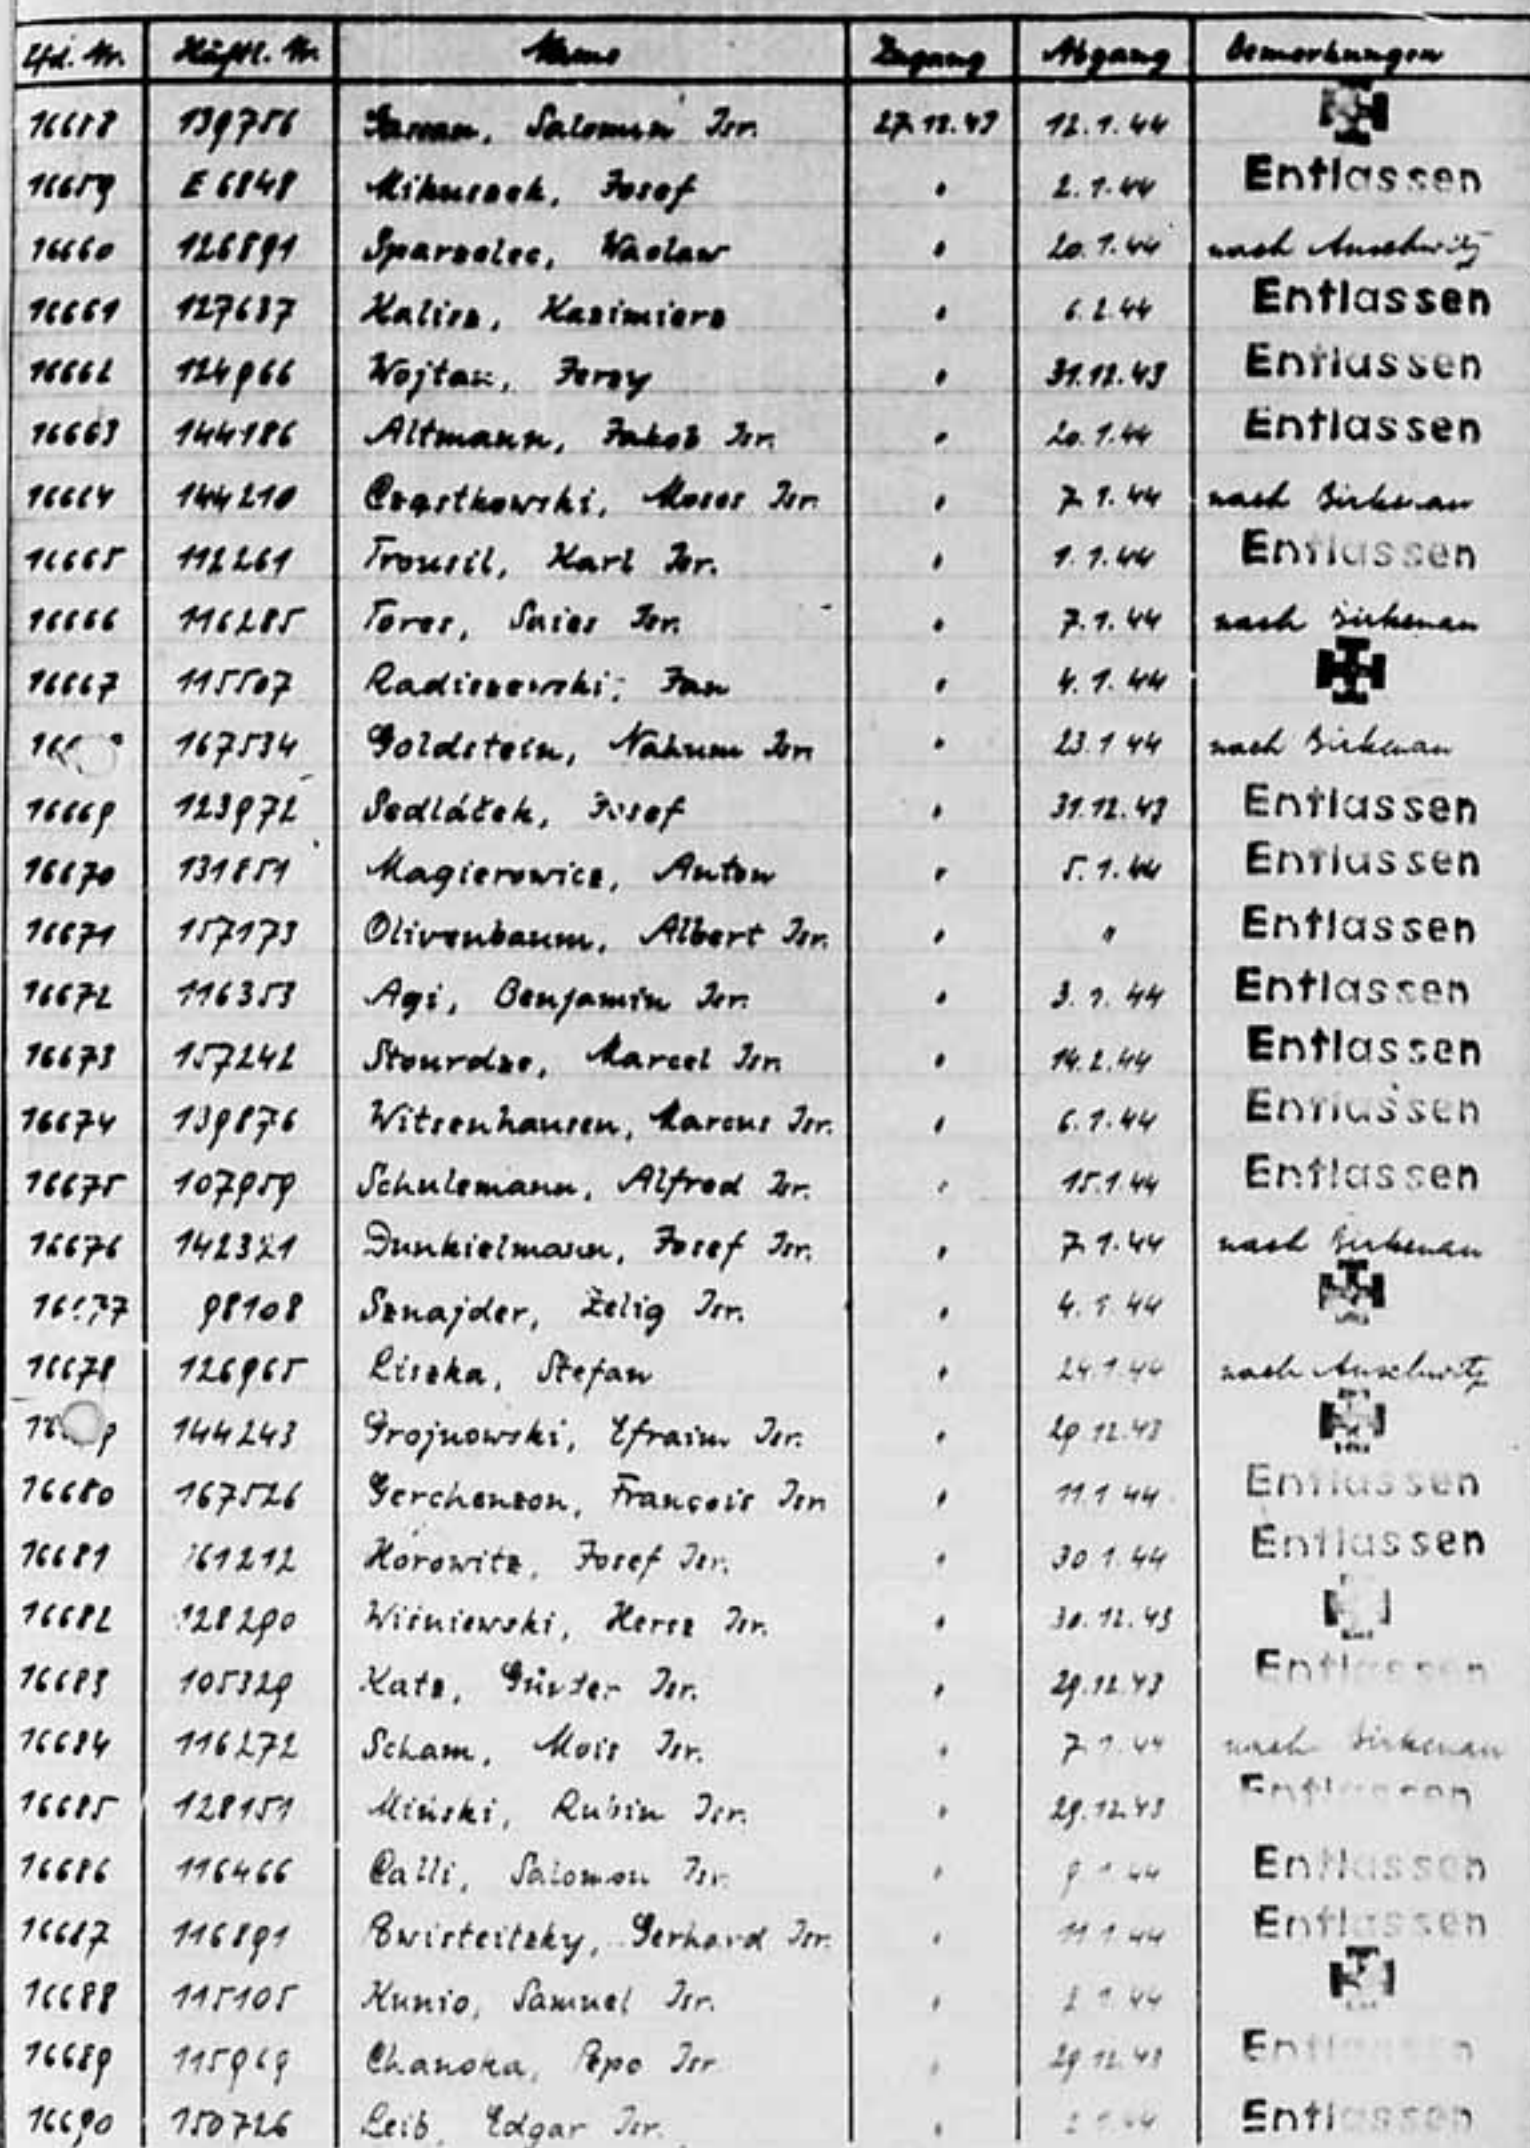 Lfd. Nr. Häftl. Nr. Name Zugang Abgang Bemerkungen
16658 139756 Salomon Isr. 27.12.43 12.1.44
16659 E 6848 Mikuszek, Josef " 2.1.44 Entlassen
16660 126891 Sparzelec, Waclaw " 20.1.44 nach Auschwitz
16661 127637 Kalisz, Kazimierz " 6.2.44 Entlassen
16662 124966 Wojtas, Jerzy " 31.12.43 Entlassen
16663 144186 Altmann, Jakob Isr. " 20.1.44 Entlassen
16664 144210 Cząstkowski, Moses Isr. " 7.1.44 nach Birkenau
16665 112261 Trousil, Karl Isr. " 1.1.44 Entlassen
16666 116285 Tores, Saies Isr. " 7.1.44 nach Birkenau
16667 115507 Radiszewski, Jan " 4.1.44
167534 Goldstein, Nahum Isr. " 23.1.44 nach Birkenau
16669 123972 Sedláček, Josef " 31.12.43 Entlassen
16670 131851 Magierowicz, Anton " 5.1.44 Entlassen
16671 157173 Olivenbaum, Albert Isr. " " Entlassen
16672 116353 Agi, Benjamin Isr. " 3.1.44 Entlassen
16673 157242 Stourdze, Marcel Isr. " 14.2.44 Entlassen
16674 139876 Witsenhausen, Marcus Isr. " 6.1.44 Entlassen
16675 107959 Schulemann, Alfred Isr. " 15.1.44 Entlassen
16676 142321 Dunkielmann, Josef Isr. " 7.1.44 nach Birkenau
16677 98108 Sznajder, Zelig Isr. " 4.1.44
16678 126965 Liszka, Stefan " 24.1.44 nach Auschwitz
144243 Grojnowski, Efraim Isr. " 29.12.43
16680 167526 Gerchenzon, François Isr. " 11.1.44 Entlassen
16681 161212 Horowitz, Josef Isr. " 30.1.44 Entlassen
16682 128290 Wiśniewski, Hersz Isr. " 30.12.43
16683 105329 Katz, Günter Isr. " 29.12.43 Entlassen
16684 116272 Scham, Mois Isr. " 7.1.44 nach Birkenau
16685 128151 Miński, Rubin Isr. " 29.12.43 Entlassen
16686 116466 Calli, Salomon Isr. " 9.1.44 Entlassen
16687 116891 Gerhard Isr. " 11.1.44 Entlassen
16688 115105 Kunio, Samuel Isr. " 2.1.44
16689 115969 Chanoka, Pepo Isr. " 29.12.43 Entlassen
16690 150726 Leib, Edgar Isr. " Entlassen